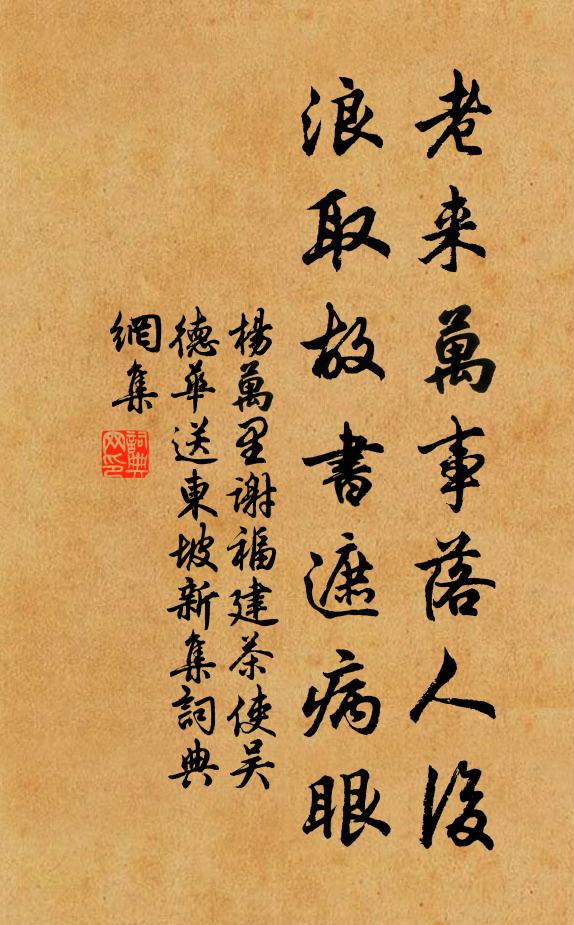 老来萬事落人後
浪取故書遮病眼
楊萬里谢福建茶使吴
德華送東坡新集詞典
網集
詞典
网印